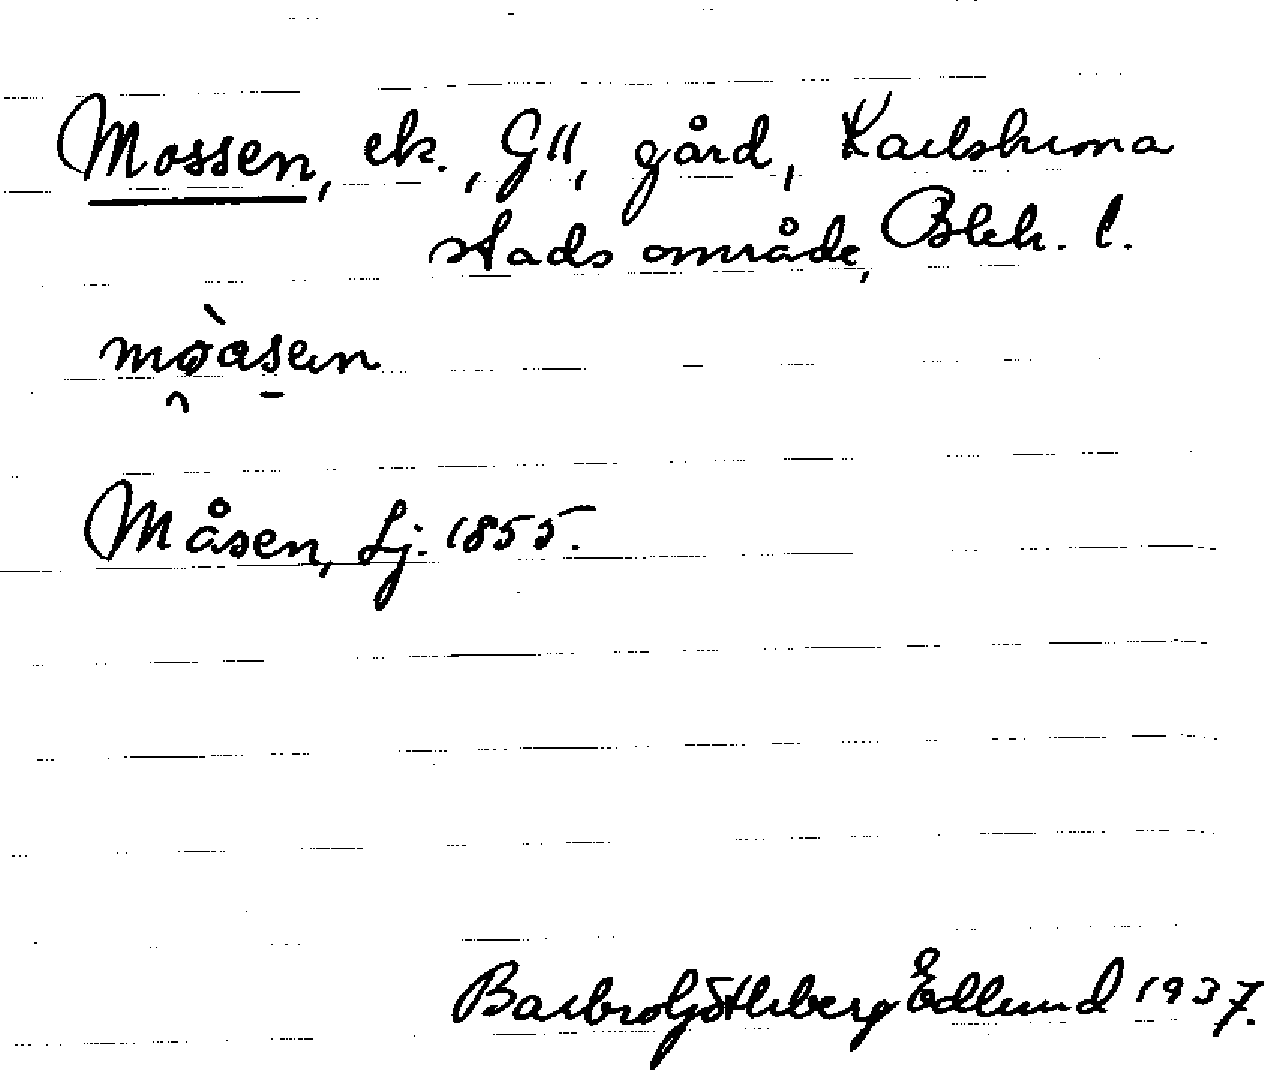 Mossen, ek., GII, gård, Karlshamna
stads område, Blek. l.
mòasen
Måsen, Lj. 1855.
Barbro Götleberg Edlund 1937.